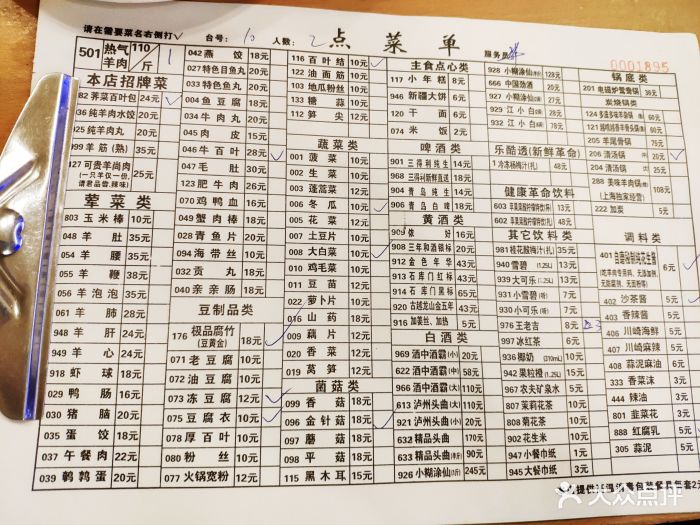 请在需要菜名右侧打✓
台号: 10 人数: 2
点菜单
服务员
0001895
501 热气羊肉 110/斤 1
本店招牌菜
082 荠菜百叶包 24元
036 纯羊肉水饺 20元
035 纯羊肉丸 20元
099 羊筋(熟) 35元
127 可贵羊尚肉
(一只羊仅一份,请君品尝,辣味)
28元
荤菜类
803 玉米棒 10元
048 羊肚 35元
054 羊腰 35元
055 羊鞭 38元
056 羊泡泡 35元
061 羊肺 28元
948 羊肝 24元
949 羊心 24元
918 虾球 18元
029 鸭肠 16元
030 猪脑 20元
035 蛋饺 18元
037 午餐肉 22元
039 鹌鹑蛋 20元
042 燕饺 18元
027 特色目鱼丸
033 特色目鱼丸
004 鱼豆腐 18元
034 牛肉丸 20元
045 肉皮 15元
046 牛百叶 28元
047 毛肚 30元
123 肥牛肉 30元
070 鸡鸭血 16元
049 蟹肉棒 18元
028 青鱼片 20元
094 海带丝 10元
032 贡丸 18元
040 亲亲肠 18元
豆制品类
176 极品腐竹(豆黄金) 18元
071 老豆腐 12元
072 油豆腐 10元
073 冻豆腐 12元
075 豆腐衣 10元
078 厚百叶 10元
080 粉丝 10元
077 火锅宽粉 12元
116 百叶结 10元
122 油面筋 10元
103 地瓜粉丝 10元
133 糖蒜 10元
112 笋尖 12元
蔬菜类
001 菠菜 10元
002 生菜 10元
003 蓬蒿菜 12元
006 冬瓜 10元
005 花菜 12元
007 土豆片 10元
008 大白菜 10元
010 鸡毛菜 10元
011 豆苗 12元
022 萝卜片 10元
016 山药 18元
009 藕片 12元
020 香菜 12元
019 莴笋 12元
菌菇类
099 香菇 18元
096 金针菇 18元
097 蘑菇 15元
098 平菇 18元
115 黑木耳 15元
主食点心类
117 小年糕 8元
946 新疆大饼 6元
120 干面 6元
074 米饭 2元
啤酒类
901 三得利纯生 14元
968 三得利新鲜直送
919 青岛纯生 14元
908 青岛白啤 18元
黄酒类
909 侬好 16元
908 三年和酒银标 20元
912 金色年华 43元
913 石库门红标 35元
914 石库门黑标 50元
920 古越龙山金五年 43元
916 加姜丝、加热 5元
白酒类
969 酒中酒霸(小) 20元
622 酒中酒霸(中) 58元
966 酒中酒霸(大) 110元
613 泸州头曲(大) 110元
921 泸州头曲(小) 20元
632 精品头曲 170元
633 精品头曲(半斤) 90元
926 小糊涂仙(1斤) 245元
928 小糊涂仙(半斤) 128元
666 中国劲酒 20元
927 小糊涂仙 27元
929 江小白 28元
932 江小白 33元
乐酷透(新鲜革命)
1 冷冻杨梅汁(扎) 48元
健康革命饮料
603 13元
602 48元
其它饮料类
981 桂花酸梅汁(扎) 35元
940 雪碧 (1.25L) 13元
939 大可乐 (1.25L) 13元
931 小雪碧 7元
930 小可乐 7元
976 王老吉 8元
997 冰红茶 6元
936 椰奶 (310mL) 10元
942 果粒橙 (1.25L) 15元
967 农夫矿泉水 5元
807 茉莉花茶 10元
808 菊花茶 10元
902 花生米 10元
947 小餐巾纸 1元
945 大餐巾纸 3元
锅底类
201 电磁炉鸳鸯锅 36元
炭烧锅类
60元
75元
205 羊尾骨锅 60元
206 清汤锅 20元
204 清汤锅 25元
288 美味羊肉锅
(上海独家经营)
108元
222 加炭 5元
调料类
401 自磨秘制纯花生酱
6元
402 沙茶酱 5元
403 香辣酱 5元
406 川崎海鲜 5元
407 川崎麻辣 5元
408 蒜泥麻油 6元
333 香菜沫 3元
444 辣油 3元
801 韭菜花 3元
888 红腐乳 5元
305 蒜泥 5元
大众点评